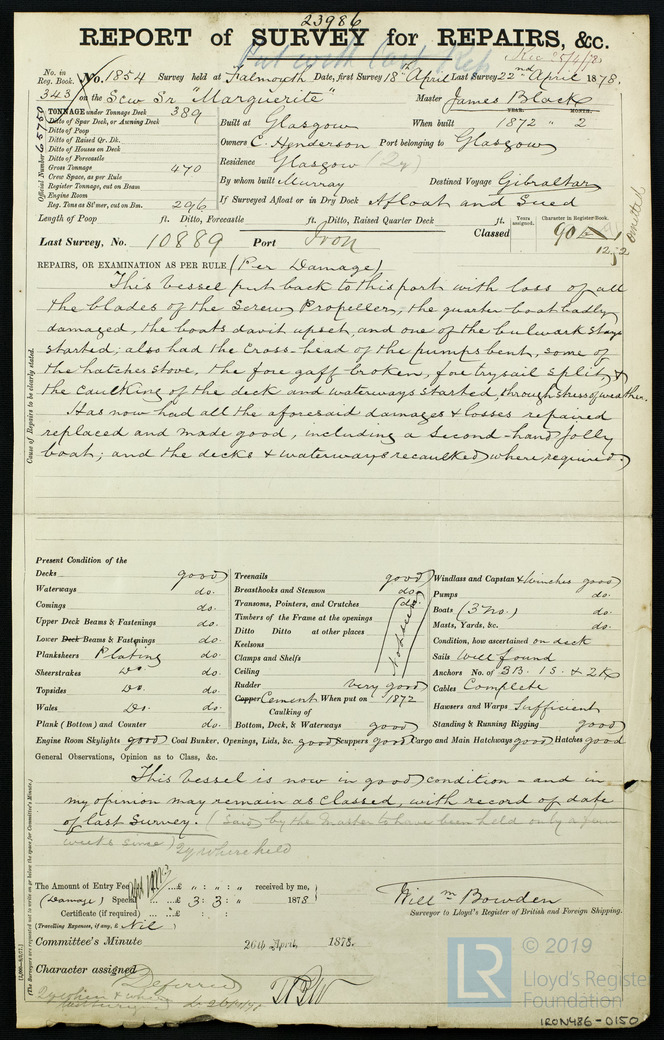 23986
REPORT of SURVEY for REPAIRS, &c.
No. in Reg. Book. No. 1854 Survey held at Falmouth Date, first Survey 18th April Last Survey 22nd April 1878.
343 on the Scw Sr "Marguerite" Master James Black
TONNAGE under Tonnage Deck 389
Ditto of Spar Deck, or Awning Deck
Ditto of Poop
Ditto of Raised Qr. Dk.
Ditto of Houses on Deck
Ditto of Forecastle
Gross Tonnage 470
Crew Space, as per Rule
Register Tonnage, cut on Beam
Engine Room
Reg. Tons as St'mer, cut on Bm. 296
Official Number 65750
YEAR. MONTH.
Built at Glasgow When built 1872 " 2
Owners C. Henderson Port belonging to Glasgow
Residence Glasgow
By whom built Murray Destined Voyage Gibraltar
If Surveyed Afloat or in Dry Dock Afloat and Sued
Length of Poop ft. Ditto, Forecastle ft. Ditto, Raised Quarter Deck ft.
Last Survey, No. 10889 Port Iron Classed
Years assigned. Character in Register-Book.
90 A 1
12,72
omitted
REPAIRS, OR EXAMINATION AS PER RULE (Per Damage)
Cause of Repairs to be clearly stated.
This vessel put back to this port with loss of all
the blades of the Screw Propeller, the quarter boat badly
damaged, the boats davit upset, and one of the bulwark stays
started; also had the cross-head of the pumps bent, some of
the hatches stove, the fore gaff broken, fore trysail split, &
the caulking of the deck and waterways started, through stress of weather.
Has now had all the aforesaid damages & losses repaired
replaced and made good, including a second-hand jolly
boat; and the decks & waterways recaulked where required.
Present Condition of the
Decks good
Waterways do.
Comings do.
Upper Deck Beams & Fastenings do.
Lower Deck Beams & Fastenings do.
Planksheers Plating do.
Sheerstrakes Do. do.
Topsides Do. do.
Wales Do. do.
Plank (Bottom) and Counter do.
Treenails good
Breasthooks and Stemson do.
Transoms, Pointers, and Crutches do.
Timbers of the Frame at the openings
Ditto Ditto at other places
Keelsons
Clamps and Shelfs
Ceiling
Rudder very good
Copper Cement When put on 1872
Caulking of
Bottom, Deck, & Waterways good
Windlass and Capstan & Winches good
Pumps do.
Boats (3 No.) do.
Masts, Yards, &c. do.
Condition, how ascertained on deck
Sails well found
Anchors No. of 3B. 1S. & 2K
Cables Complete
Hawsers and Warps Sufficient
Standing & Running Rigging good
Engine Room Skylights good Coal Bunker, Openings, Lids, &c. good Scuppers good Cargo and Main Hatchways good Hatches good
General Observations, Opinion as to Class, &c.
This vessel is now in good condition - and in
my opinion may remain as classed, with record of date
of last survey. (Said by the Master to have been held only a few
weeks since) 2y where held
The Amount of Entry Fee ...£ " : " : " received by me,
(Damage) Special ...£ 3 : 3 : " 1878
Certificate (if required) ...£ " : " : "
(Travelling Expenses, if any, £ Nil )
Willm Bowden
Surveyor to Lloyd's Register of British and Foreign Shipping.
Committee's Minute 26th April, 1878.
Character assigned Deferred
(The Surveyors are requested not to write on or below the space for Committee's Minute.)
LR
© 2019
Lloyd's Register
Foundation
IRON486-0150